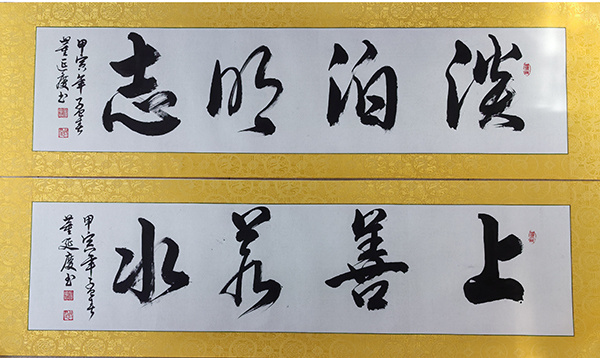 淡泊明志
甲寅年
董延慶书
上善若水
甲寅年
董延慶书